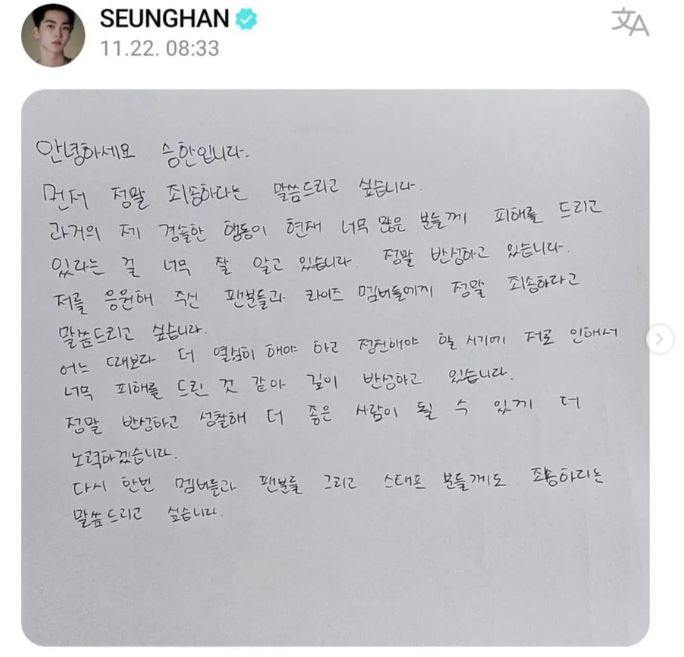 SEUNGHAN
11.22. 08:33
안녕하세요 승한입니다.
먼저 정말 죄송하다는 말씀드리고 싶습니다.
과거의 제 경솔한 행동이 현재 너무 많은 분들께 피해를 드리고
있다는 걸 너무 잘 알고 있습니다. 정말 반성하고 있습니다.
저를 응원해 주신 팬분들과 라이즈 멤버들에게 정말 죄송하다고
말씀드리고 싶습니다.
어느 때보다 더 열심히 해야 하고 정진해야 할 시기에 저로 인해서
너무 피해를 드린 것 같아 깊이 반성하고 있습니다.
정말 반성하고 성찰해 더 좋은 사람이 될 수 있게 더
노력하겠습니다.
다시 한번 멤버들과 팬분들 그리고 스태프 분들께도 죄송하다는
말씀드리고 싶습니다.